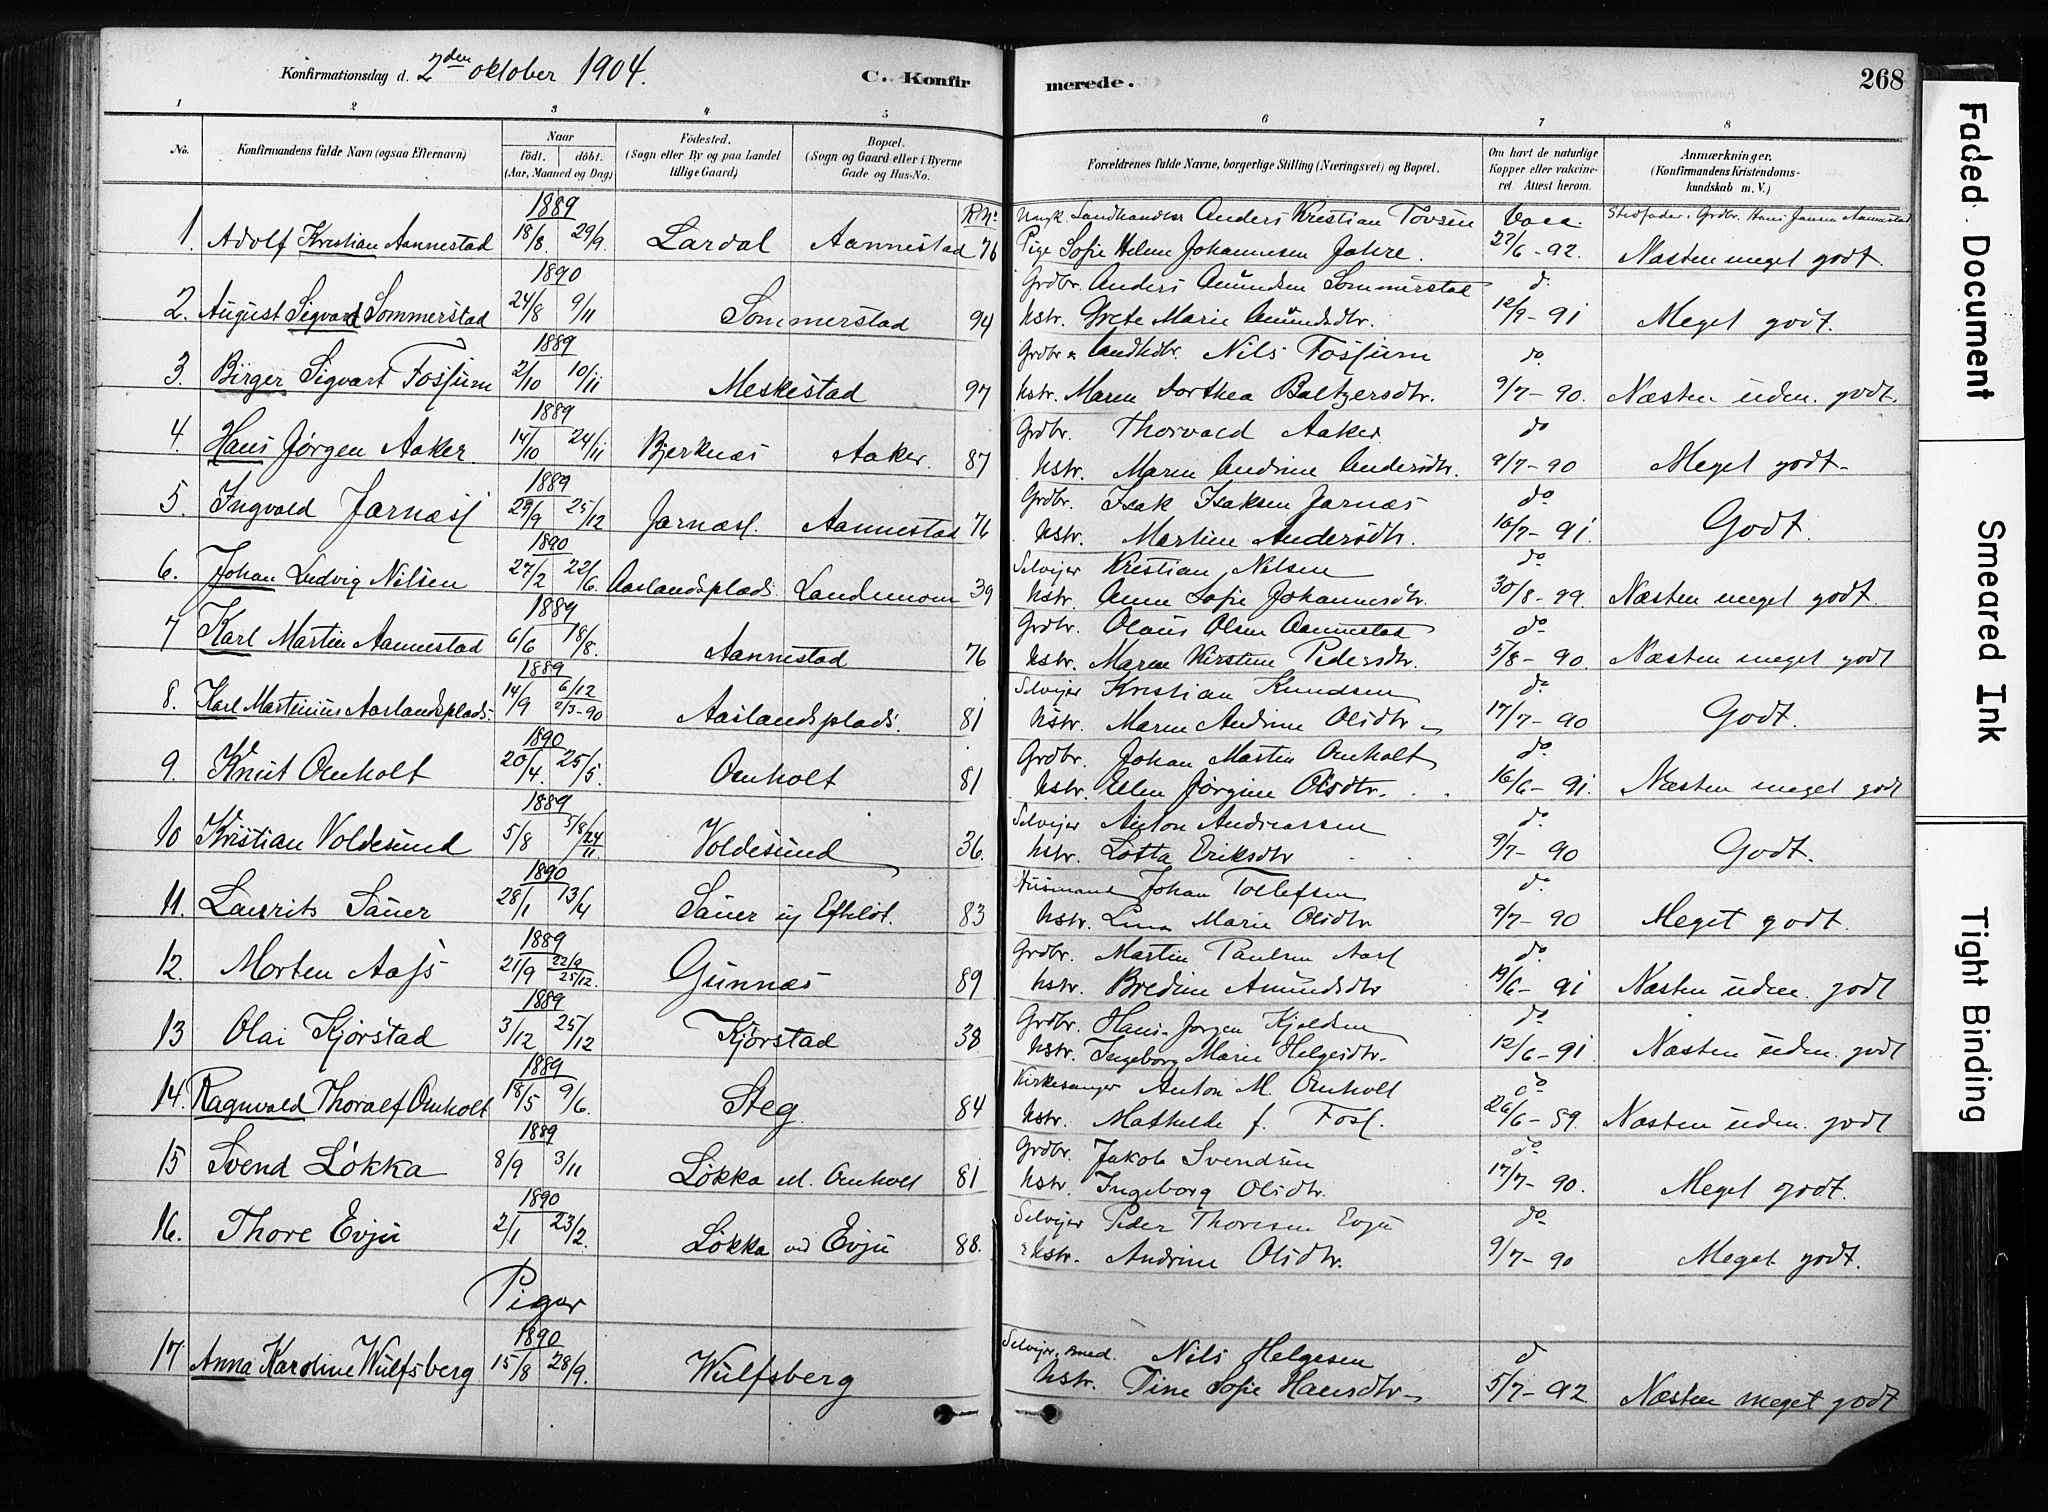 Konfirmationsdag d. 2den oktober 1904. C. Konfirmerede. 268
1 2 3 4 5 6 7 8
No. Konfirmandens fulde Navn (ogsaa Efternavn) Naar födt. döbt. (Aar, Maaned og Dag) Födested. (Sogn eller By og paa Landet tillige Gaard) Bopæl. (Sogn og Gaard eller i Byerne Gade og Hus-No. Forældrenes fulde Navne, borgerlige Stilling (Næringsvei) og Bopæl. Om havt de naturlige Kopper eller vakcineret. Attest herom. Anmærkninger. (Konfirmandens Kristendomskundskab m. V.)
1889 Ungk. Landhandler Anders Kristian Tovsen Vacc. Stedfader. Grdbr. Hans Jensen Aannestad
1. Adolf Kristian Aannestad 18/8. 29/9. Lardal Aannestad 76 Pige Sofie Helene Johannesen Jahre. 22/6-92. Næsten meget godt.
1890 Grdbr. Anders Amundsen Sommerstad do
2. August Sigvard Sommerstad 24/8 9/11 Sommerstad 94 Hstr. Grete Marie Amundsdtr. 12/9-91 Meget godt.
1889 Grdbr & Landhdlr. Nils Fossum do
3. Birger Sigvart Fossum 2/10 10/11 Meskestad 97 Hstr. Maren Dorthea Baltzersdtr. 9/7-90. Næsten uden. godt.
1889 Grdbr. Thorvald Aaker. do
4. Hans Jørgen Aaker. 14/10 24/11 Bjerknæs Aaker. 87 Hstr. Maren Andrine Andersdtr. 9/7-90 Meget godt-
1889 Grdbr. Isak Isaksen Jarnæs do
5. Ingvald Jarnæss 29/9 25/12 Jarnæss. Aannestad 76 Hstr. Martine Andersdtr. 16/7-91 Godt.
1890 Selveier Kristian Nilsen do
6. Johan Ludvig Nilsen 27/2 22/6. Aaslandsplads. Landemoen 39 Hstr. Anne Sofie Johannesdtr. 30/8-99. Næsten meget godt.
1889 Grdbr. Olaus Olsen Aannestad do
7 Karl Martin Aannestad 6/6 18/8. Aannestad 76 Hstr. Maren Kirstine Pedersdtr. 5/8-90. Næsten meget godt
1889 6/12 Selveier Kristian Knudsen do
8. Karl Martinius Aaslandsplads. 14/9 2/3-90 Aaslandsplads. 81 Hstr. Maren Andrine Olsdtr 17/7-90 Godt.
1890 Grdbr. Johan Martin Omholt do
9. Knut Omholt 20/4. 25/5. Omholt 81 Hstr. Ellen Jørgine Olsdtr. 16/6-91. Næsten meget godt
1889 Selveier Anton Andreassen do
10 Kristian Voldesund 5/8 5/8/24/11 Voldesund 36. Hstr. Lotta Eriksdtr 9/7-90 Godt.
1890 Husmand Johan Tollefsen do
11. Laurits Sauer 28/1 13/4 Sauer u/ Efteløt. 83 Hstr. Lina Marie Olsdtr. 9/7-90 Meget godt.
1889 Grdbr. Martin Paulsen Aass do
12. Morten Aass 21/9 22/9 25/12. Gunnæs 89 Hstr. Bredine Amundsdtr 19/6-91 Næsten uden. godt
1889 Grdbr. Hans Jørgen Kjeldsen do
13 Olai Kjørstad 3/12 25/12 Kjørstad 38 Hstr. Ingeborg Marie Helgesdtr. 12/6-91 Næsten uden. godt
1889 Kirkesanger Anton M. Omholt do
14. Ragnvald Thoralf Omholt 18/5 9/6. Steg. 84 Hstr. Mathilde f. Foss. 26/6-89. Næsten uden. godt
1889 Grdbr. Jakob Svendsen do
15 Svend Løkka 8/9 3/11 Løkka u. Omholt 81 Hstr. Ingeborg Olsdtr. 17/7-90. Meget godt.
1890 Selveier Peder Thoresen Evju do
16. Thore Evju 2/1 23/2. Løkka ved Evju 88. Hstr. Andrine Olsdtr. 9/7-90 Meget godt.
Piger
1890 Selveier, smed. Nils Helgesen do
17 Anna Karoline Wulfsberg 15/8 28/9. Wulfsberg Hstr. Tine Sofie Hansdtr 5/7-92 Næsten meget godt
R Nr.
Faded Document
Smeared Ink
Tight Binding